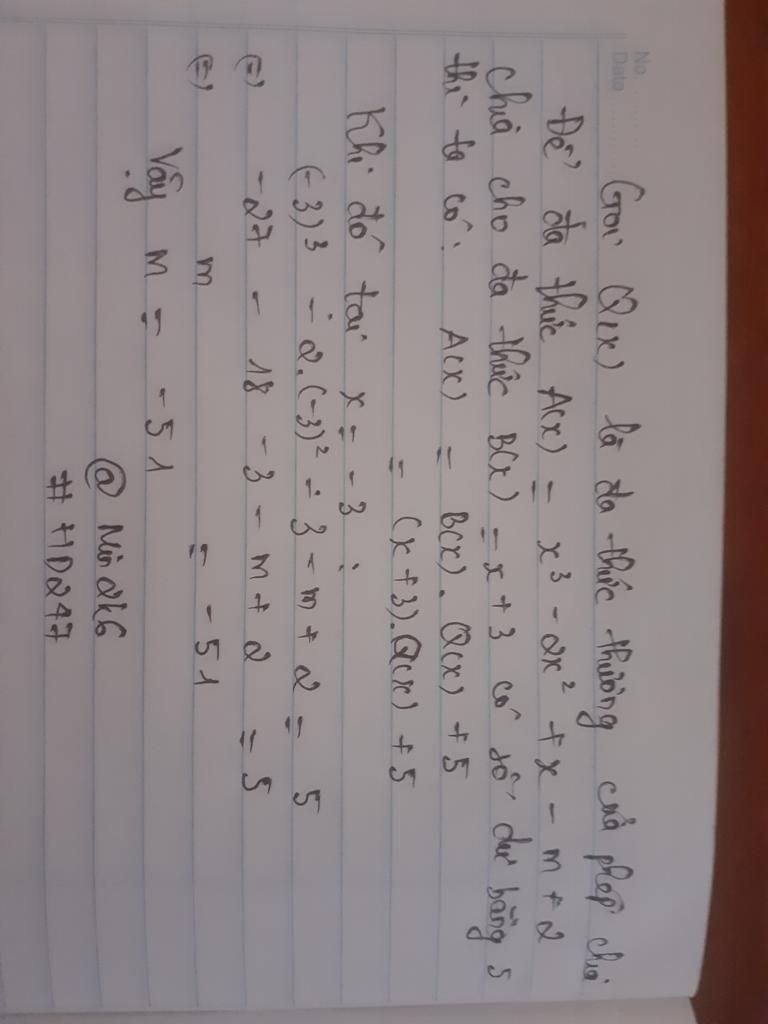 No.
Date
Gọi Q(x) là đa thức thương của phép chia
Để đa thức A(x) = x³ - 2x² + x - m + 2
chia cho đa thức B(x) = x + 3 có số dư bằng 5
thì ta có: A(x) = B(x). Q(x) + 5
= (x + 3). Q(x) + 5
Khi đó tại x = -3 :
(-3)³ - 2.(-3)² - 3 - m + 2 = 5
(=) -27 - 18 - 3 - m + 2 = 5
(=) m = -51
Vậy m = -51
@ Nin246
# HD247